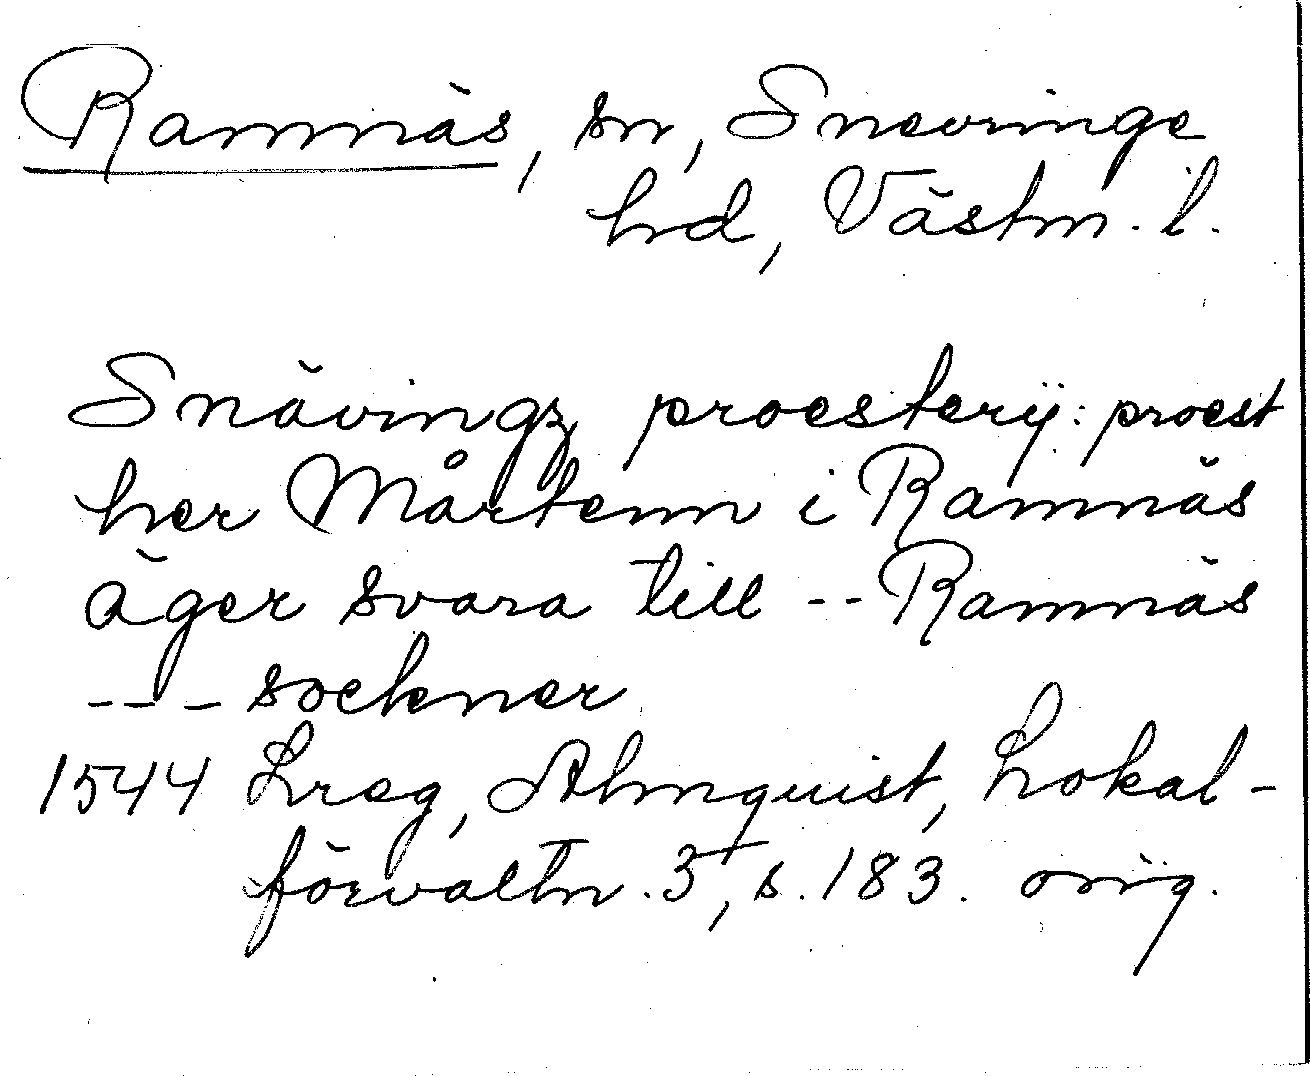 Ramnäs, sn, Snevringe
hd, Västm. l.
Snävingz proesterij: proest
her Mårtenn i Ramnäs
äger svara till -- Ramnäs
--- sockner
1544 Lreg, Almquist, Lokal-
förvaltn. 3, s. 183. orig.